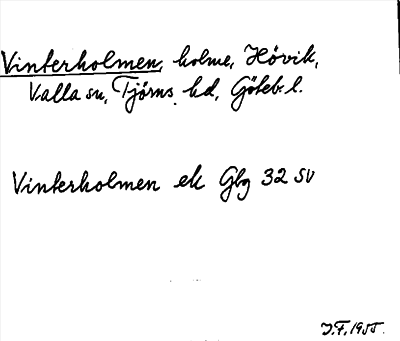 Vinterholmen, holme, Hövik,
Valla sn, Tjörns hd, Göteb. l.
Vinterholmen ek Gbg 32 SV
J.F. 1955.